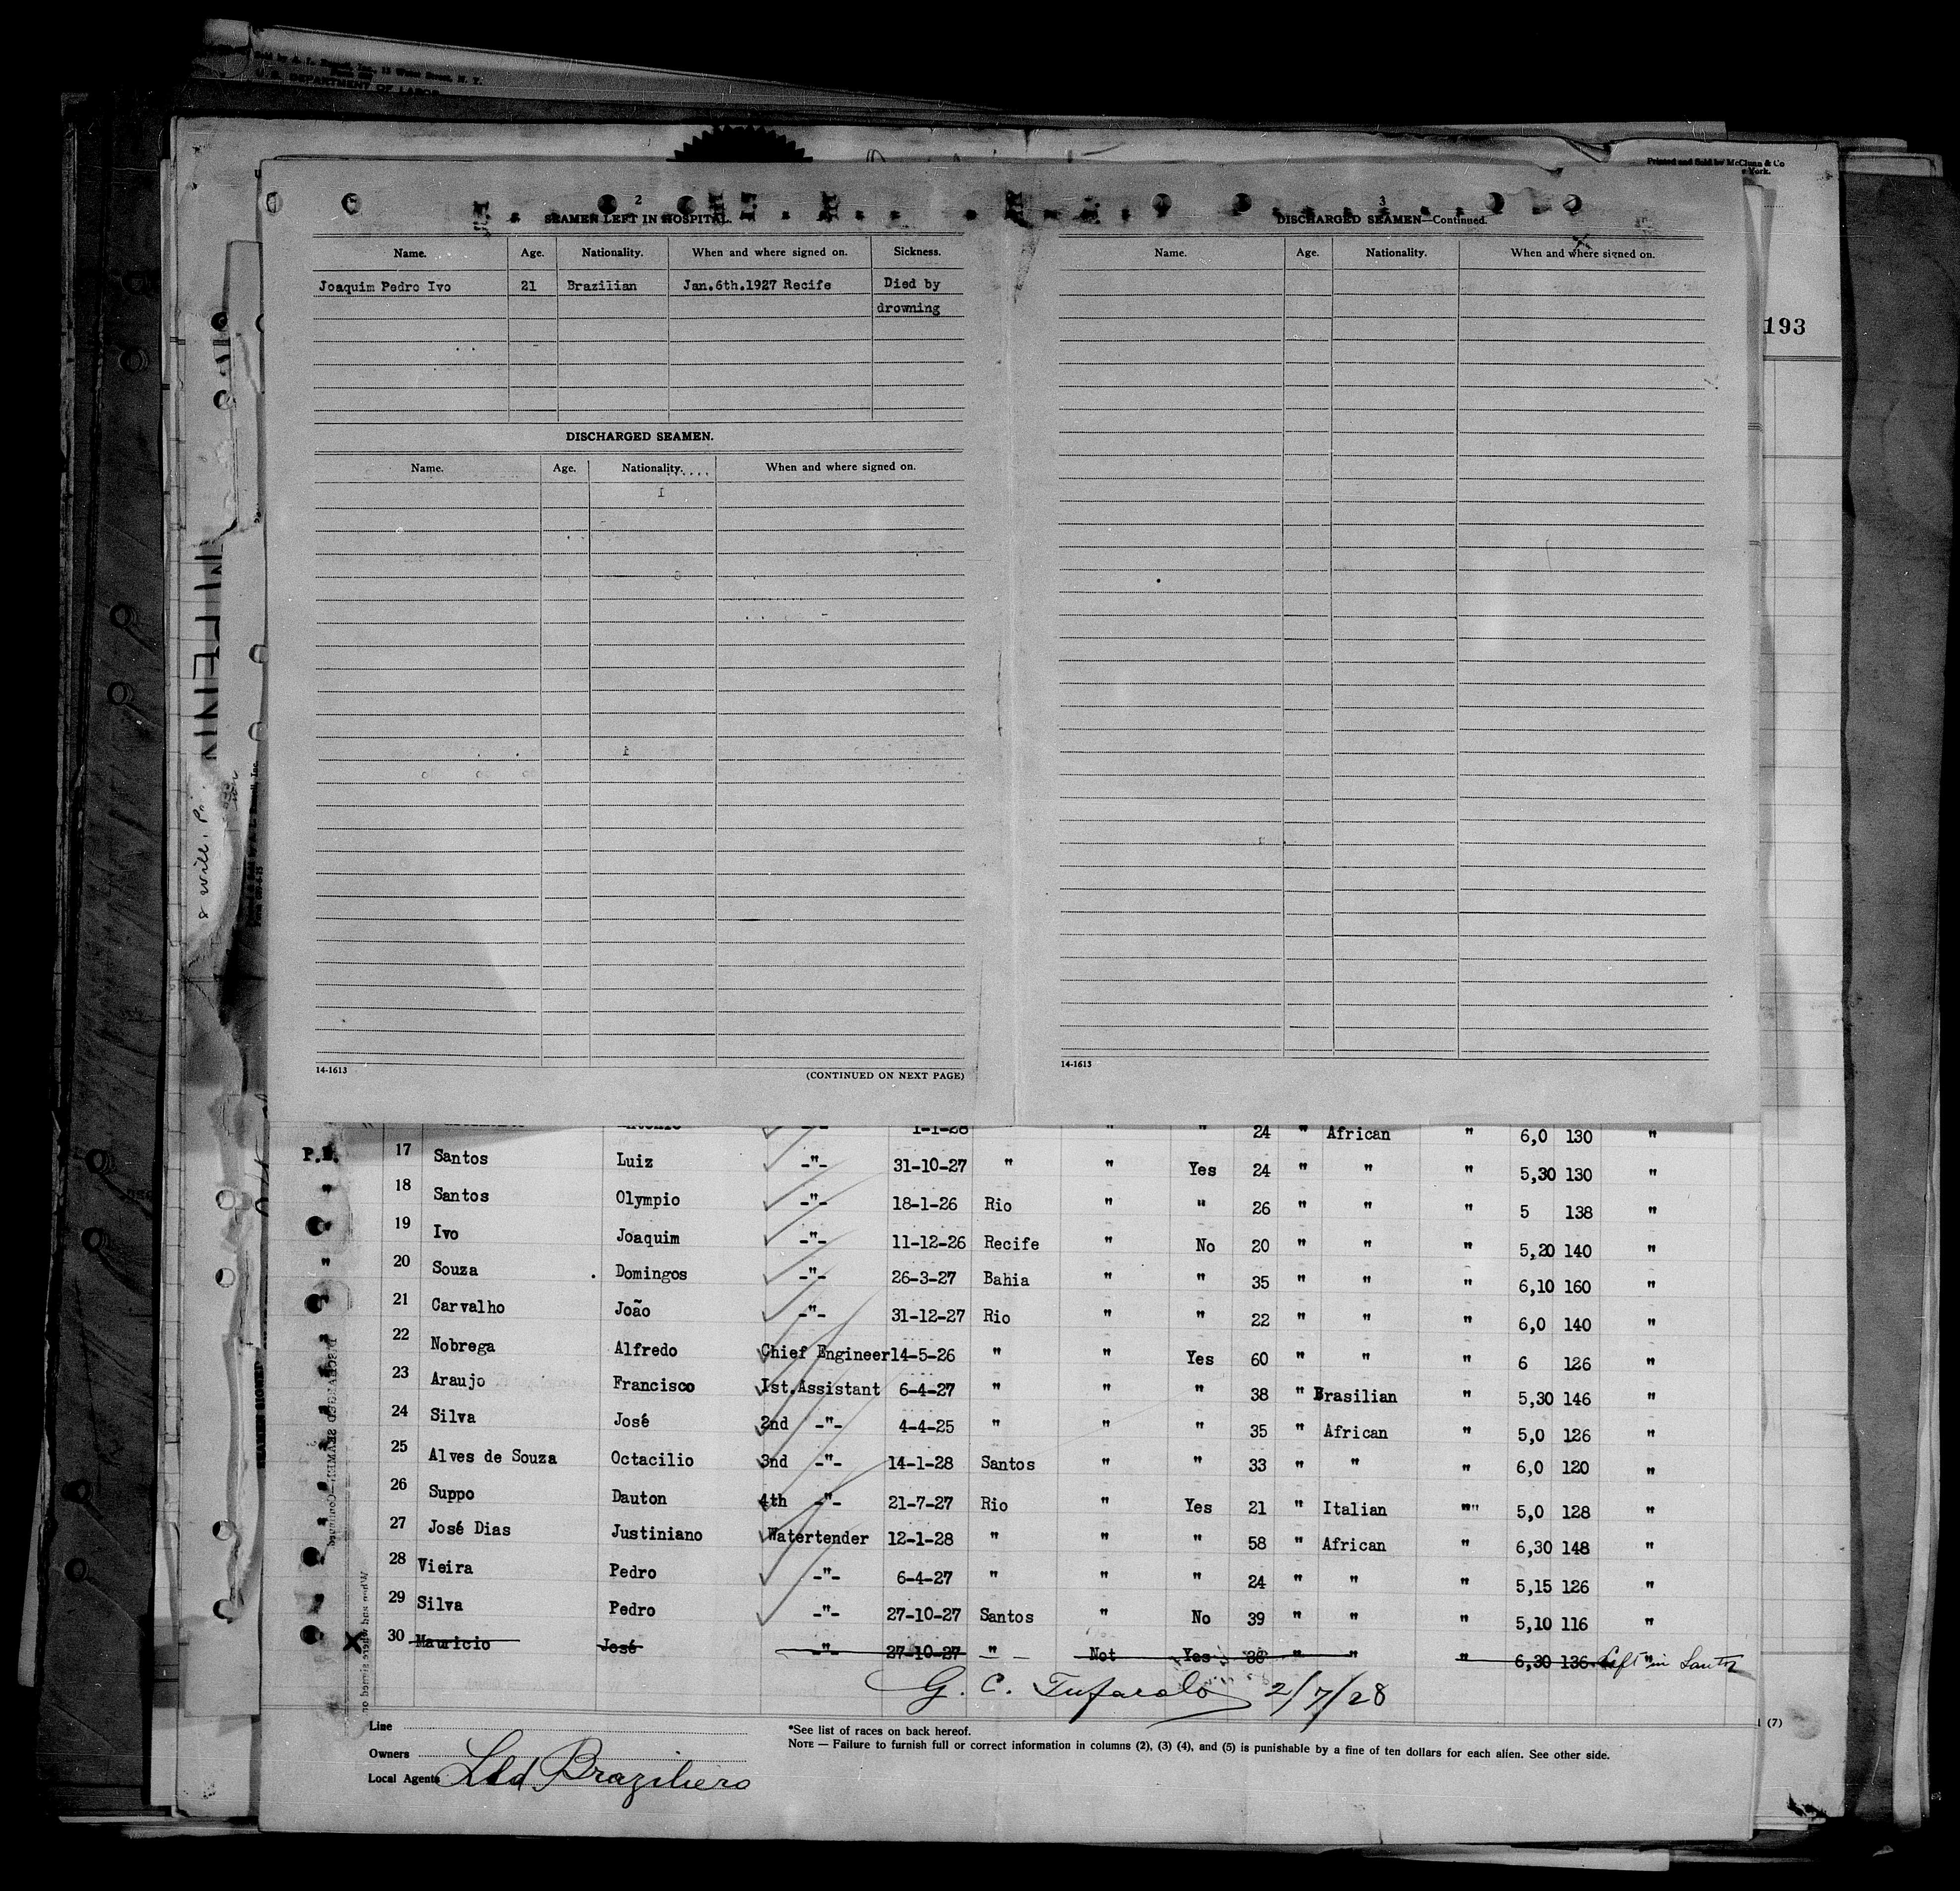 U. S. DEPARTMENT OF LABOR
Printed and Sold by McClunn & Co
193
2
SEAMEN LEFT IN HOSPITAL.
Name. Age. Nationality. When and where signed on. Sickness.
Joaquim Pedro Ivo 21 Brazilian Jan.6th.1927 Recife Died by
drowning
DISCHARGED SEAMEN.
Name. Age. Nationality. When and where signed on.
14-1613
(CONTINUED ON NEXT PAGE)
3
DISCHARGED SEAMEN—Continued.
Name. Age. Nationality. When and where signed on.
14-1613
1-1-28 " " 24 " African " 6,0 130 "
P.B. 17 Santos Luiz -"- 31-10-27 " " Yes 24 " " " 5,30 130 "
" 18 Santos Olympio -"- 18-1-26 Rio " " 26 " " " 5 138 "
19 Ivo Joaquim -"- 11-12-26 Recife " No 20 " " " 5,20 140 "
" 20 Souza Domingos -"- 26-3-27 Bahia " " 35 " " " 6,10 160 "
21 Carvalho João -"- 31-12-27 Rio " " 22 " " " 6,0 140 "
" 22 Nobrega Alfredo Chief Engineer 14-5-26 " " Yes 60 " " " 6 126 "
" 23 Araujo Francisco Ist.Assistant 6-4-27 " " " 38 " Brasilian " 5,30 146 "
" 24 Silva José 2nd -"- 4-4-25 " " " 35 " African " 5,0 126 "
" 25 Alves de Souza Octacilio 3nd -"- 14-1-28 Santos " " 33 " " " 6,0 120 "
" 26 Suppo Dauton 4th -"- 21-7-27 Rio " Yes 21 " Italian "" 5,0 128 "
" 27 José Dias Justiniano Watertender 12-1-28 " " " 58 " African " 6,30 148 "
28 Vieira Pedro -"- 6-4-27 " " " 24 " " " 5,15 126 "
" 29 Silva Pedro -"- 27-10-27 Santos " No 39 " " " 5,10 116 "
X 30 Mauricio José -"- 27-10-27 " Not Yes 38 " " " 6,30 136 " Left in Santos
G. C. Tufarolo 2/7/28
Line
Owners
Local Agents Lld Braziliero
*See list of races on back hereof.
NOTE — Failure to furnish full or correct information in columns (2), (3) (4), and (5) is punishable by a fine of ten dollars for each alien. See other side.
(7)